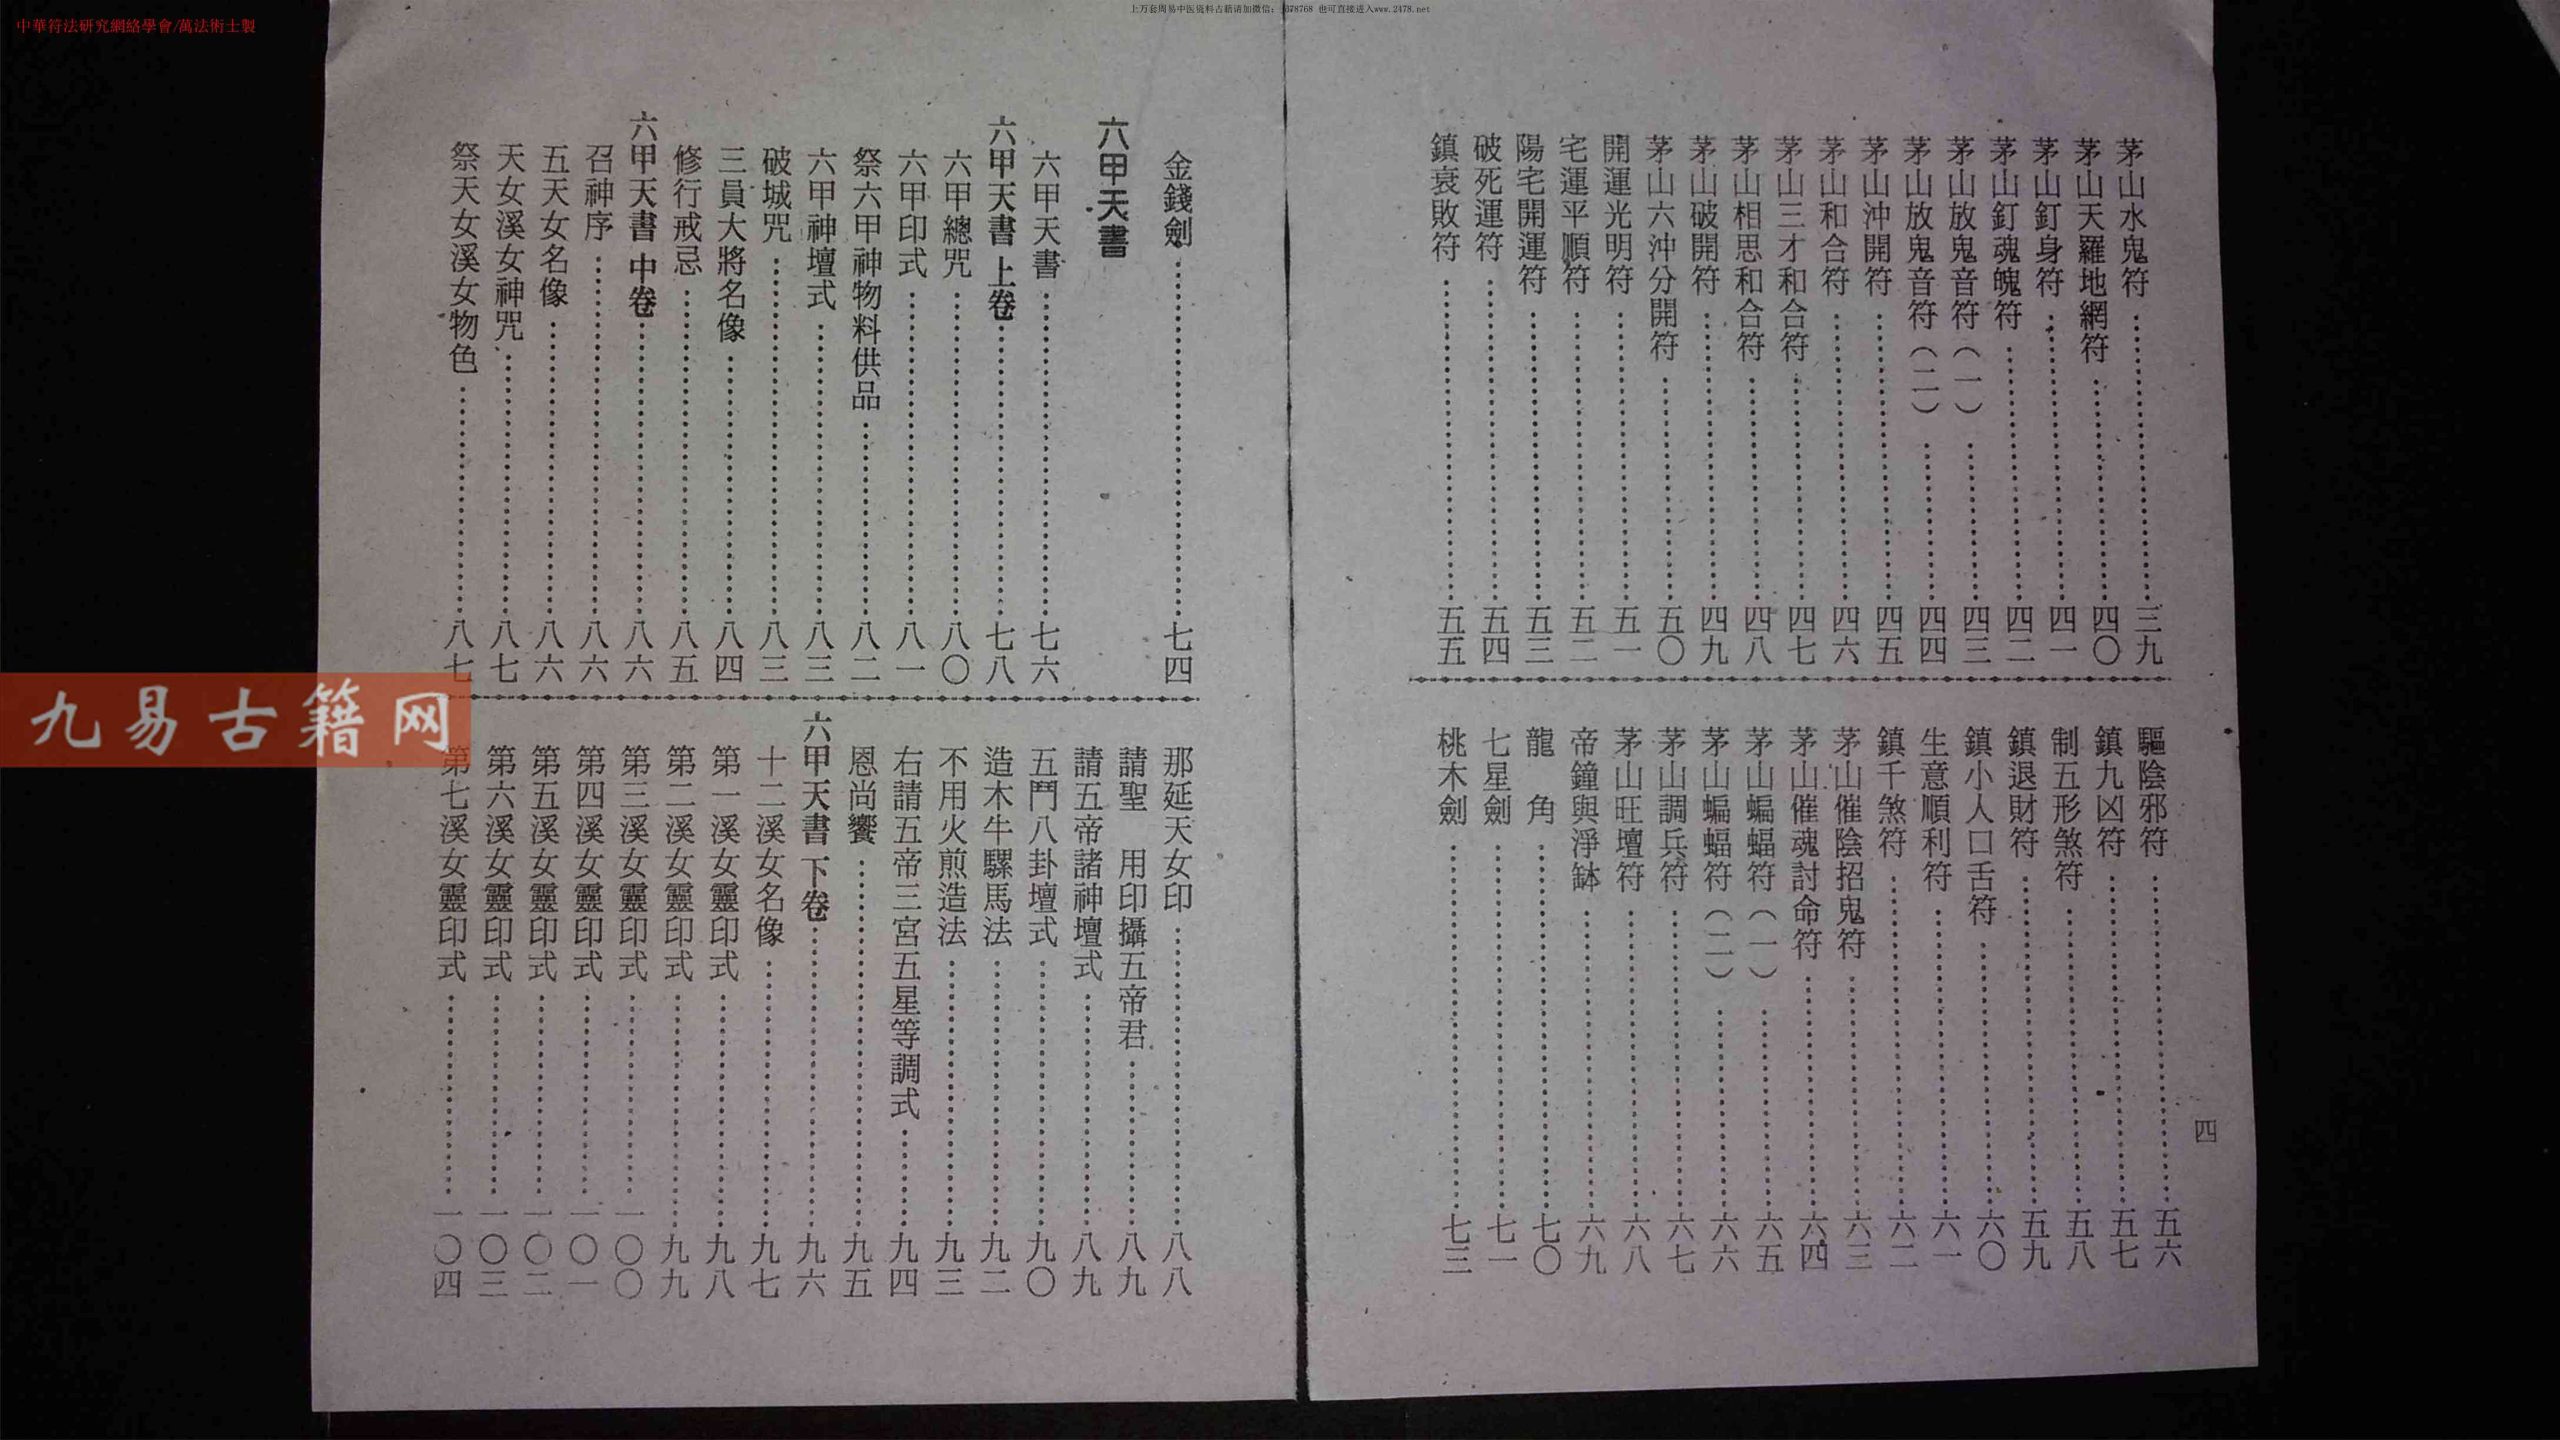 中華符法研究網絡學會/萬法術士製
茅山水鬼符⋯⋯三九
茅山天羅地網符⋯⋯四〇
茅山釘身符⋯⋯四一
茅山釘魂魄符⋯⋯四二
茅山放鬼音符（一）⋯⋯四三
茅山放鬼音符（二）⋯⋯四四
茅山沖開符⋯⋯四五
茅山和合符⋯⋯四六
茅山三才和合符⋯⋯四七
茅山相思和合符⋯⋯四八
茅山破開符⋯⋯四九
茅山六沖分開符⋯⋯五〇
開運光明符⋯⋯五一
宅運平順符⋯⋯五二
陽宅開運符⋯⋯五三
破死運符⋯⋯五四
鎮衰敗符⋯⋯五五
驅陰邪符⋯⋯五六
鎮九凶符⋯⋯五七
制五形煞符⋯⋯五八
鎮退財符⋯⋯五九
鎮小人口舌符⋯⋯六〇
生意順利符⋯⋯六一
鎮千煞符⋯⋯六二
茅山催陰招鬼符⋯⋯六三
茅山催魂討命符⋯⋯六四
茅山蝙蝠符（一）⋯⋯六五
茅山蝙蝠符（二）⋯⋯六六
茅山調兵符⋯⋯六七
茅山旺壇符⋯⋯六八
帝鐘與淨缽⋯⋯六九
龍　角⋯⋯七〇
七星劍⋯⋯七一
桃木劍⋯⋯七三
四
金錢劍⋯⋯七四
六甲天書
六甲天書⋯⋯七六
六甲天書 上卷⋯⋯七八
六甲總咒⋯⋯八〇
六甲印式⋯⋯八一
祭六甲神物料供品⋯⋯八二
六甲神壇式⋯⋯八三
破城咒⋯⋯八三
三員大將名像⋯⋯八四
修行戒忌⋯⋯八五
六甲天書 中卷⋯⋯八六
召神序⋯⋯八六
五天女名像⋯⋯八六
天女溪女神咒⋯⋯八七
祭天女溪女物色⋯⋯八七
那延天女印⋯⋯八八
請聖　用印攝五帝君⋯⋯八九
請五帝諸神壇式⋯⋯八九
五鬥八卦壇式⋯⋯九〇
造木牛騾馬法⋯⋯九二
不用火煎造法⋯⋯九三
右請五帝三宮五星等調式⋯⋯九四
恩尚饗⋯⋯九五
六甲天書 下卷⋯⋯九六
十二溪女名像⋯⋯九七
第一溪女靈印式⋯⋯九八
第二溪女靈印式⋯⋯九九
第三溪女靈印式⋯⋯一〇〇
第四溪女靈印式⋯⋯一〇一
第五溪女靈印式⋯⋯一〇二
第六溪女靈印式⋯⋯一〇三
第七溪女靈印式⋯⋯一〇四
九易古籍网